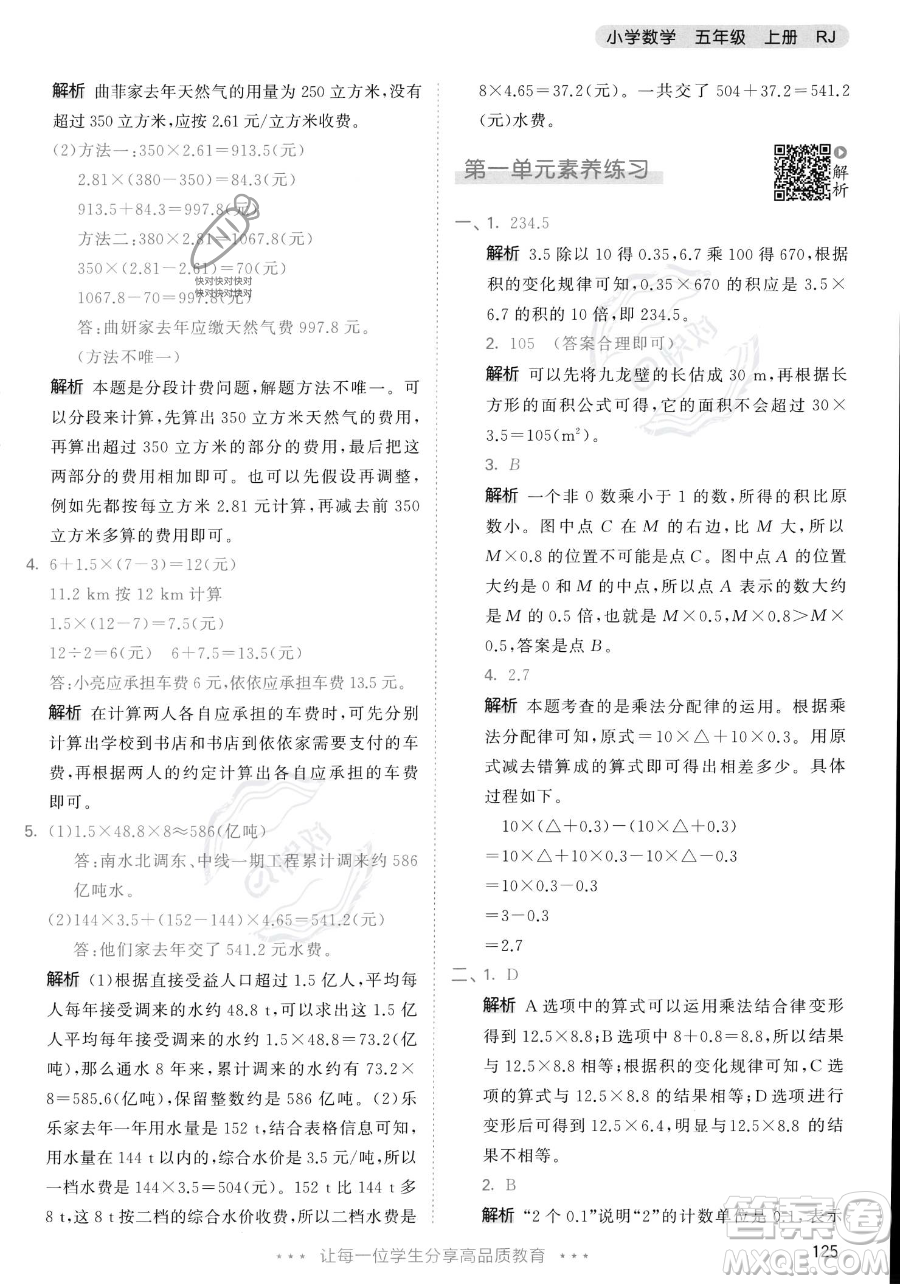 小学数学 五年级 上册 RJ
解析 曲菲家去年天然气的用量为 250 立方米,没有
超过 350 立方米,应按 2.61 元/立方米收费。
(2)方法一:350×2.61=913.5(元)
2.81×(380-350)=84.3(元)
913.5+84.3=997.8(元)
方法二:380×2.81=1067.8(元)
350×(2.81-2.61)=70(元)
1067.8-70=997.8(元)
答:曲妍家去年应缴天然气费 997.8 元。
(方法不唯一)
解析 本题是分段计费问题,解题方法不唯一。可
以分段来计算,先算出 350 立方米天然气的费用,
再算出超过 350 立方米的部分的费用,最后把这
两部分的费用相加即可。也可以先假设再调整,
例如先都按每立方米 2.81 元计算,再减去前 350
立方米多算的费用即可。
4. 6+1.5×(7-3)=12(元)
11.2 km 按 12 km 计算
1.5×(12-7)=7.5(元)
12÷2=6(元) 6+7.5=13.5(元)
答:小亮应承担车费 6 元,依依应承担车费 13.5 元。
解析 在计算两人各自应承担的车费时,可先分别
计算出学校到书店和书店到依依家需要支付的车
费,再根据两人的约定计算出各自应承担的车费
即可。
5. (1)1.5×48.8×8≈586(亿吨)
答:南水北调东、中线一期工程累计调来约 586
亿吨水。
(2)144×3.5+(152-144)×4.65=541.2(元)
答:他们家去年交了 541.2 元水费。
解析 (1)根据直接受益人口超过 1.5 亿人,平均每
人每年接受调来的水约 48.8 t,可以求出这 1.5 亿
人平均每年接受调来的水约 1.5×48.8=73.2(亿
吨),那么通水 8 年来,累计调来的水约 73.2×
8=585.6(亿吨),保留整数约是 586 亿吨。(2)乐
乐家去年一年用水量是 152 t,结合表格信息可知,
用水在 144 t 以内的,综合水价是 3.5 元/吨,所以
一档水费是 144×3.5=504(元)。152 t 比 144 t 多
8 t,这 8 t 按二档的综合水价收费,所以二档水费是
8×4.65=37.2(元)。一共交了 504+37.2=541.2
(元)水费。
第一单元素养练习
解析
一、1. 234.5
解析 3.5 除以 10 得 0.35,6.7 乘 100 得 670,根
据积的变化规律可知,0.35×670 的积应是 3.5×
6.7 的积的 10 倍,即 234.5。
2. 105 (答案合理即可)
解析 可以先将九龙壁的长估成 30 m,再根据长
方形的面积公式可得,它的面积不会超过 30×
3.5=105(m²)。
3. B
解析 一个非 0 数乘小于 1 的数,所得的积比原
数小。图中点 C 在 M 的右边,比 M 大,所以
M×0.8 的位置不可能是点 C。图中点 A 的位置
大约是 0 和 M 的中点,所以点 A 表示的数大约
是 M 的 0.5 倍,也就是 M×0.5,M×0.8>M×
0.5,答案是点 B。
4. 2.7
解析 本题考查的是乘法分配律的运用。根据乘
法分配律可知,原式=10×△+10×0.3。用原
式减去错算成的算式即可得出相差多少。具体
过程如下。
10×(△+0.3)-(10×△+0.3)
=10×△+10×0.3-10×△-0.3
=3-0.3
=2.7
二、1. D
解析 A 选项中的算式可以运用乘法结合律变形
得到 12.5×8.8;B 选项中 8+0.8=8.8,所以结果
与 12.5×8.8 相等;根据积的变化规律可知,C 选
项的算式与 12.5×8.8 的结果相等;D 选项变形
得到 12.5×6.4,明显与 12.5×8.8 的结果
不相等。
2. B
解析 “2 个 0.1”说明“2”的计数单位是 0.1,表示
快对快对快对
快对快对快对
快对
快对
让每一位学生分享高品质教育
125
答案圈
MXQE.COM